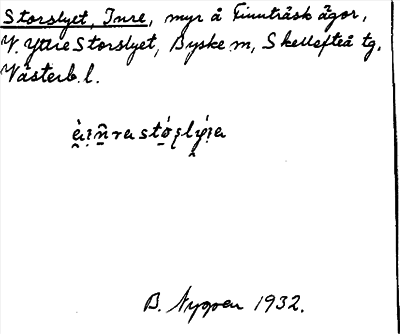 Storslyet, Inre, myr å Finnträsk ägor,
V. Yttre Storslyet, Byske m, Skellefteå tg.
Västerb. l.
B. Nygren 1932.